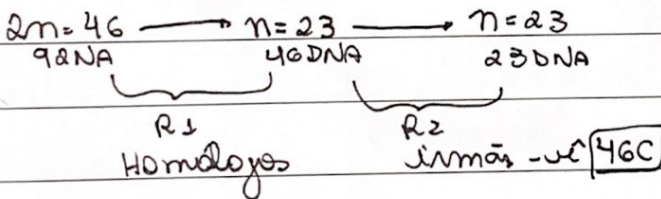 2n=46 → n=23 → n=23
92NA 46DNA 23DNA
R1 R2
Homólogos irmãs - 46C